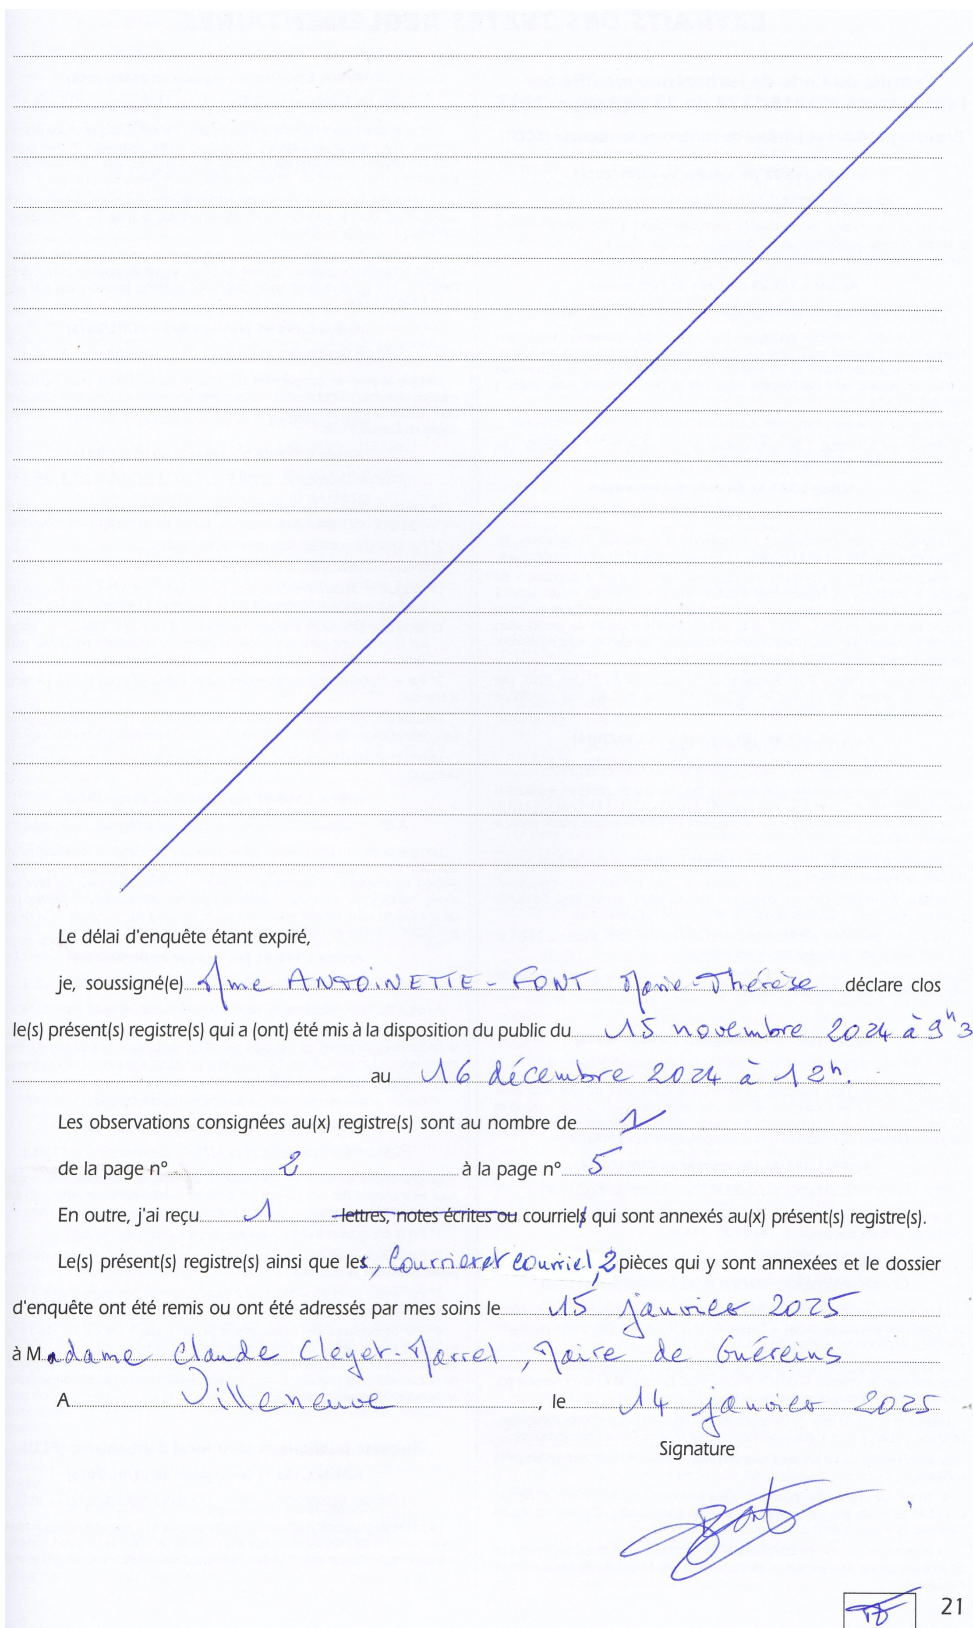 Le délai d'enquête étant expiré,
je, soussigné(e) Mme ANTOINETTE - FONT Marie-Thérèse déclare clos
le(s) présent(s) registre(s) qui a (ont) été mis à la disposition du public du 15 novembre 2024 à 9h3
au 16 décembre 2024 à 12h.
Les observations consignées au(x) registre(s) sont au nombre de 1
de la page n° 2 à la page n° 5
En outre, j'ai reçu 1 lettres, notes écrites ou courriels qui sont annexés au(x) présent(s) registre(s).
Le(s) présent(s) registre(s) ainsi que les, courrier et courriel, 2 pièces qui y sont annexées et le dossier
d'enquête ont été remis ou ont été adressés par mes soins le 15 janvier 2025
à Madame Claude Cleyet-Marrel, Maire de Guéreins
A Villeneuve, le 14 janvier 2025
Signature
21